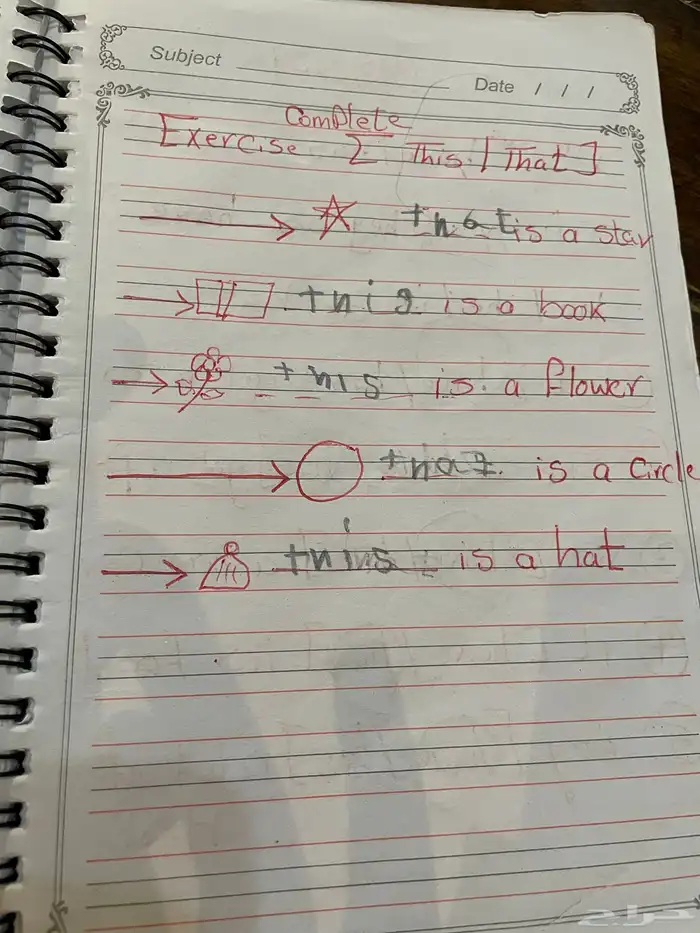 Subject
Date / / /
Complete
Exercise Σ This. [That]
that is a star
this is a book
this is. a flower
that. is a Circle
this is a hat
حراج